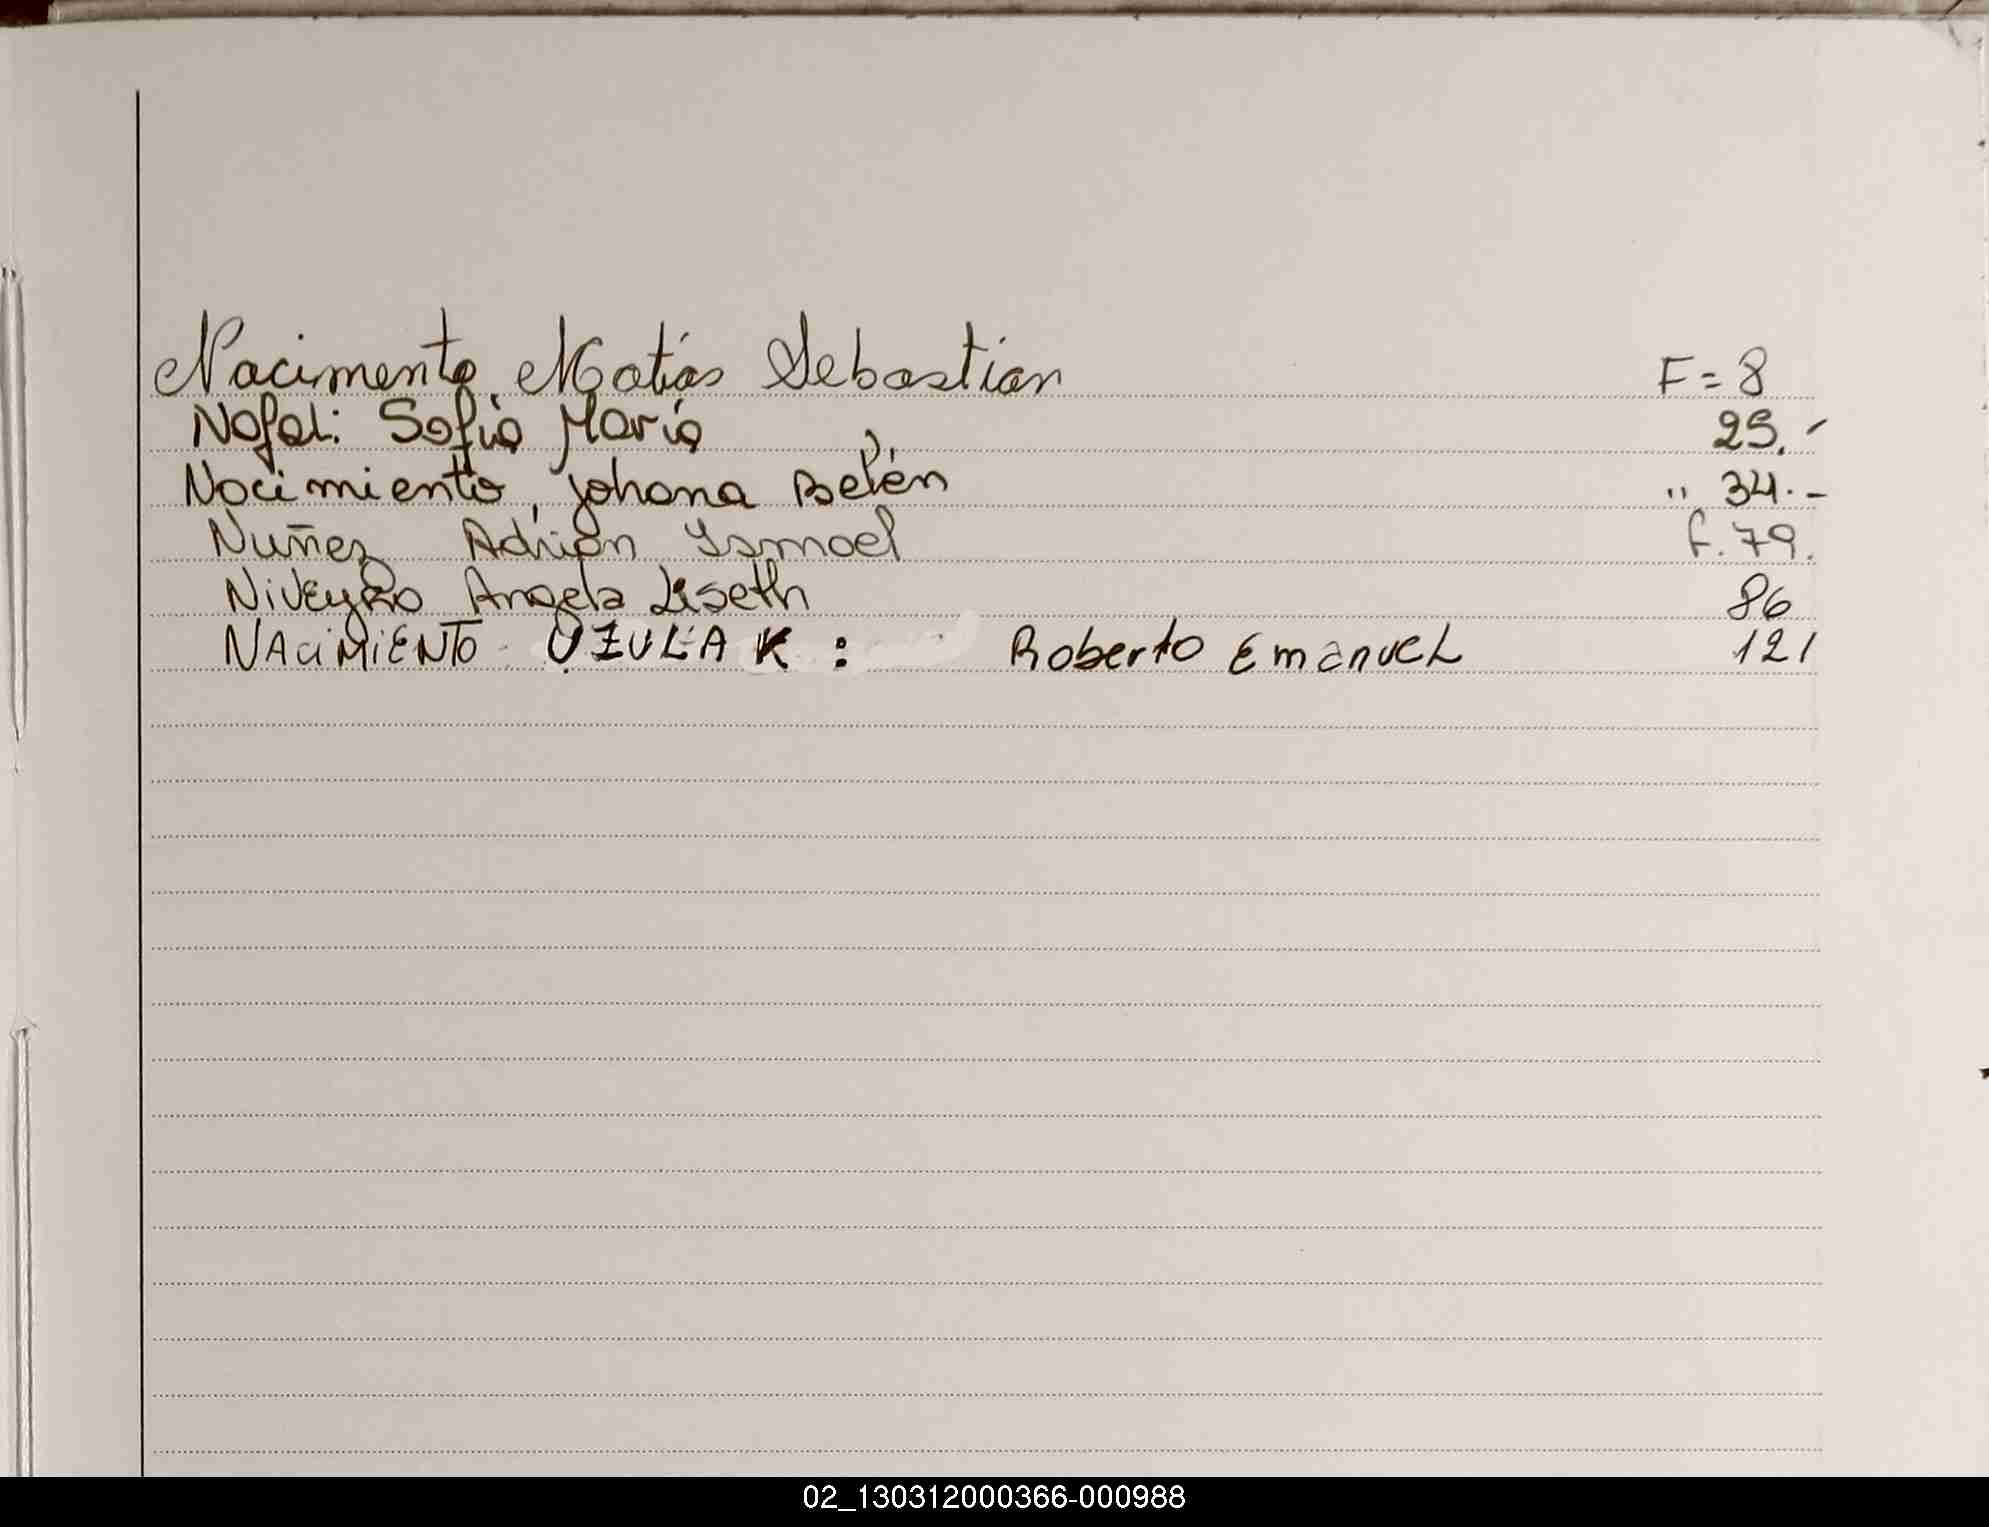 Nacimento, Matías Sebastián F=8
Nofal: Sofía María 25.-
Nacimiento, Johana Belén " 34.-
Nuñez Adrián Ismael f. 79.
Niveyro Angela Liseth 86
NACiMiENTO UZULAK : Roberto Emanuel 121
02_130312000366-000988